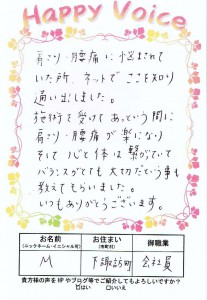 Happy Voice
肩こり・腰痛に悩まされて
いた所、ネットでここを知り
通い出しました。
施術を受けてあっという間に
肩こり・腰痛が楽になり
そして心と体は繋がっていて
バランスがとても大切だという事も
教えてもらいました。
いつもありがとうございます。
お名前 お住まい 御職業
(ニックネーム・イニシャル可) (市町村)
M 下諏訪町 会社員
貴方様の声をHPやブログ等でご紹介してもよろしいですか?
□はい □いいえ